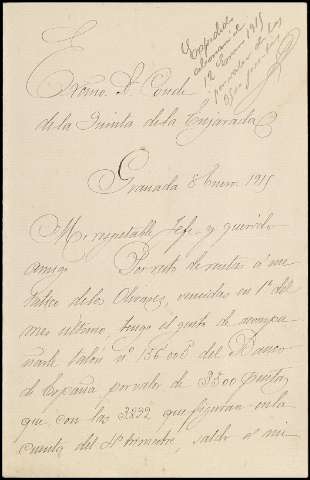 Expedido
abonaré el
12 Enero 1915
por valor de las
Exmo. Sr. Conde
de la Quinta de la Enjarada
Granada 8 Enero 1915
Mi respetable Jefe y querido
amigo. Por resto de rentas á me-
tálico de los Olivares, vencidas en 1º del
mes último, tengo el gusto de acompa-
ñarle talón nº 156.006 del Banco
de España por valor de 3500 pesetas,
que con las 3292 que figuran en la
cuenta del 4º trimestre, saldo á mi